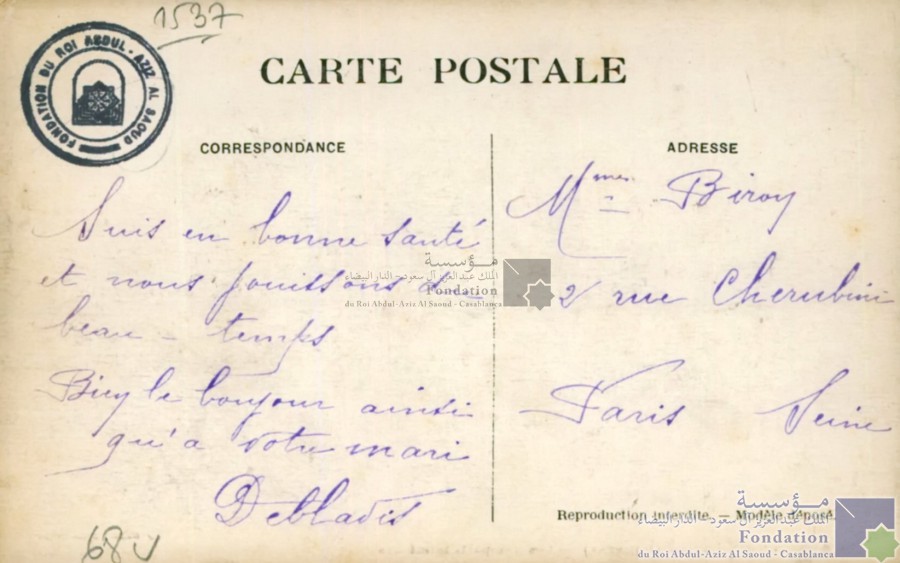 1537
FONDATION DU ROI ABDUL-AZIZ AL SAOUD
CARTE POSTALE
CORRESPONDANCE
Suis en bonne santé
et nous jouissons
beau - temps
le bonjour ainsi
qu'a votre mari
ADRESSE
Mmes Biroy
2 rue Cherubini
Paris Seine
Reproduction interdite. — Modèle déposé.
68
مؤسسة
الملك عبد العزيز آل سعود - الدار البيضاء
Fondation
du Roi Abdul-Aziz Al Saoud - Casablanca
مؤسسة
الملك عبد العزيز آل سعود - الدار البيضاء
Fondation
du Roi Abdul-Aziz Al Saoud - Casablanca